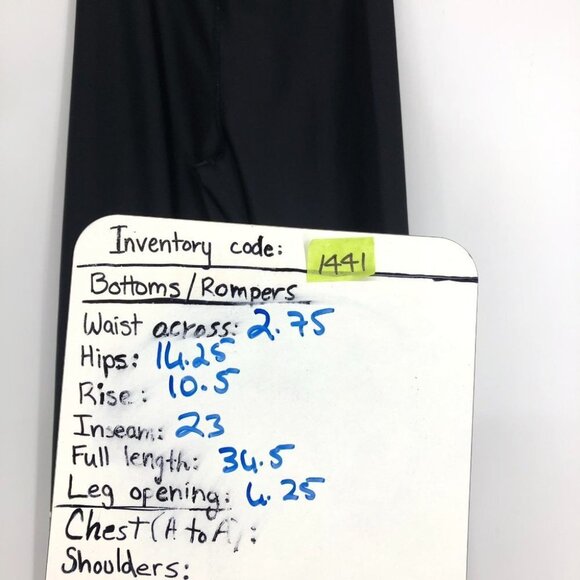 Inventory code: 1441
Bottoms/Rompers
Waist across: 2.75
Hips: 14.25
Rise: 10.5
Inseam: 23
Full length: 34.5
Leg opening: 4.25
Chest (A to A):
Shoulders: